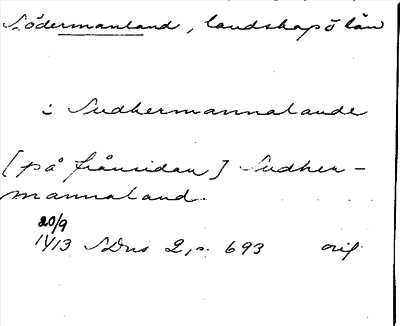 Södermanland, landskap o län
i Sudhermannalande
[på frånsidan] Sudher-
mannaland.
20/9
1413 SDns 2, s. 693 orig